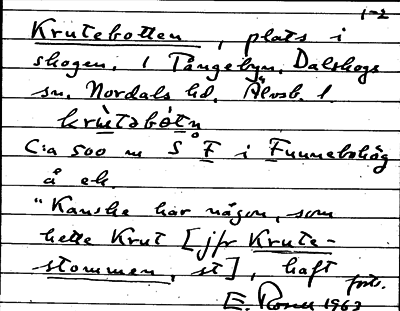 1-2
Krutebotten, plats i
skogen, i Tångebyn, Dalskogs
sn, Nordals hd, Älvsb. l.
krùtəbót̥n̥
C:a 500 m S F i Funnebohög
å ek.
"Kanske har någon, som
hette Krut [jfr Krute-
stommen, st], haft
forts.
E. Rosell 1963